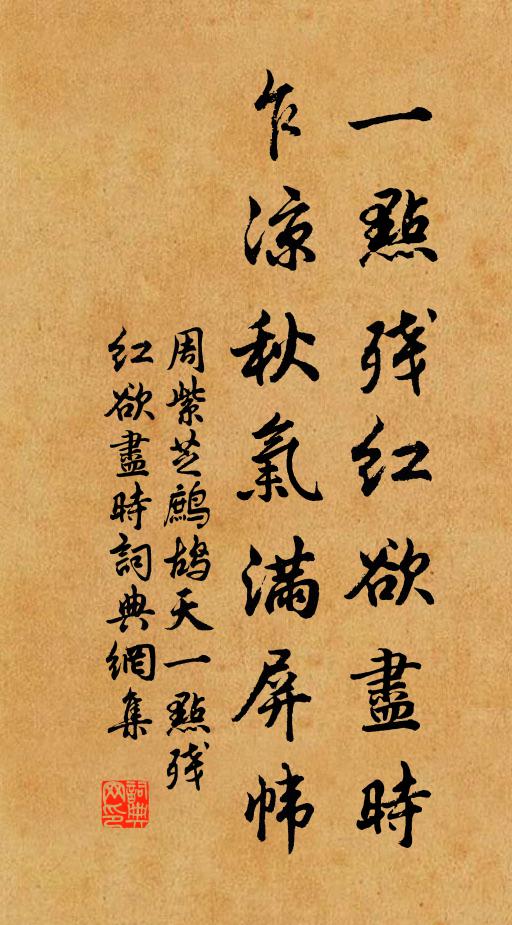 一點残紅欲盡時
乍凉秋氣滿屏帏
周紫芝鷓鴣天一點残
紅欲盡時詞典網集
詞典
网印